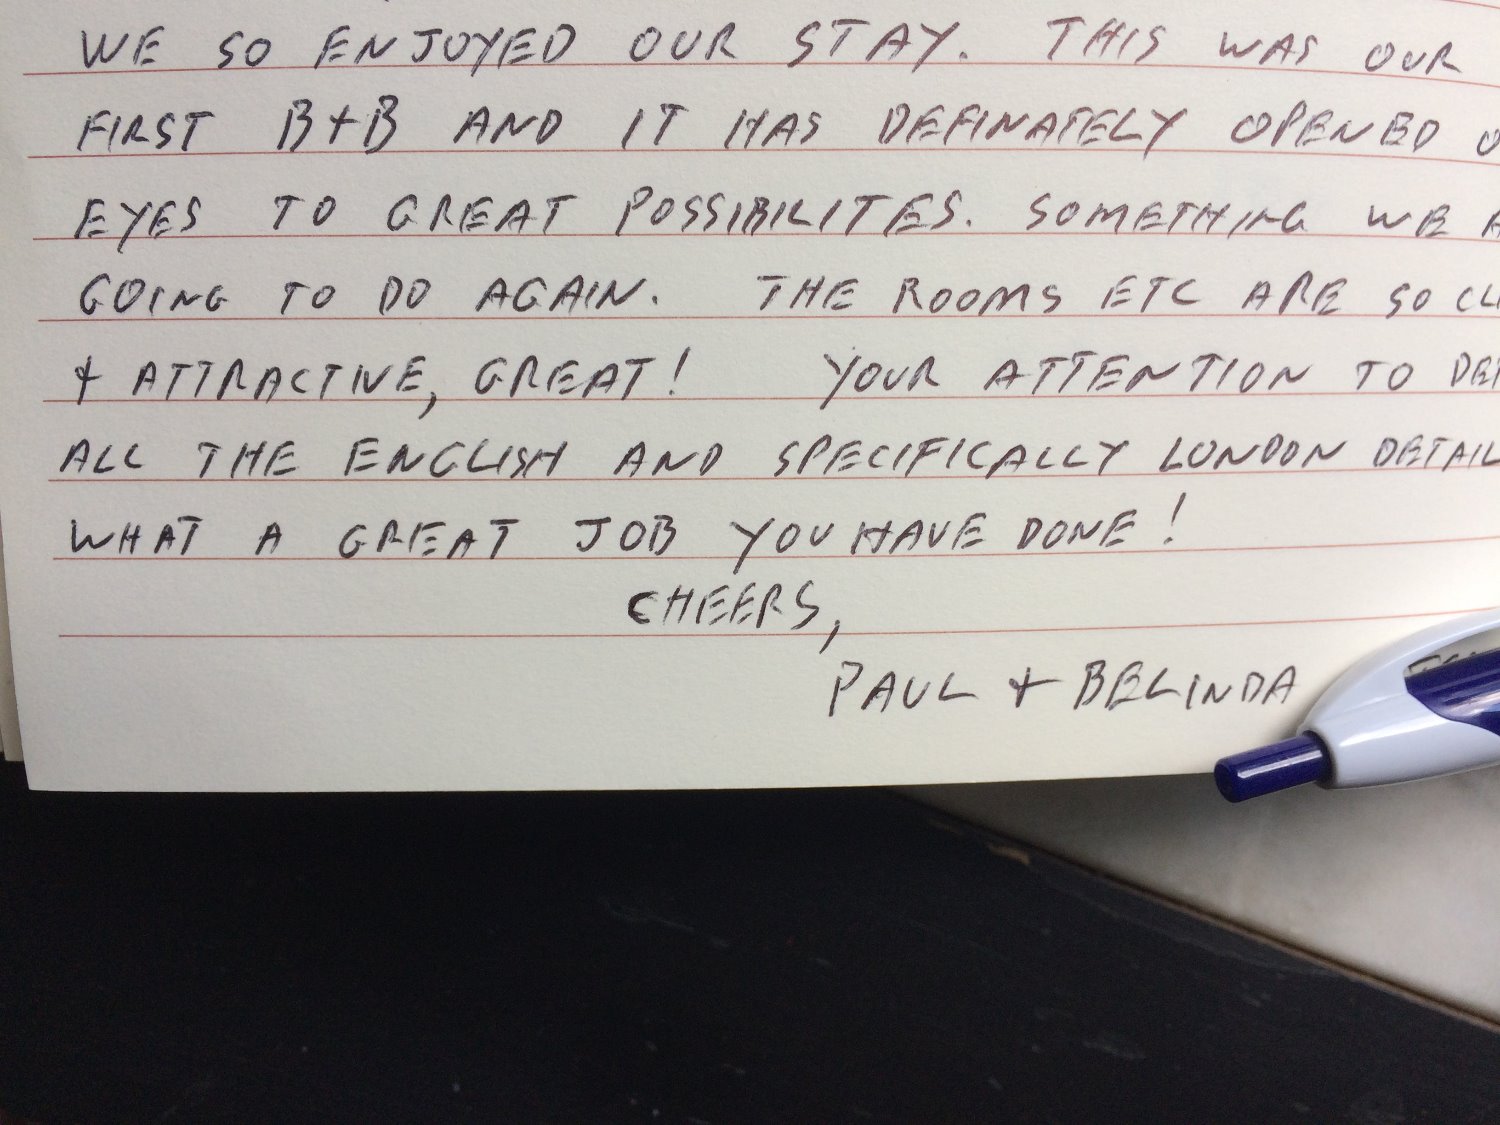 WE SO ENJOYED OUR STAY. THIS WAS OUR
FIRST B+B AND IT HAS DEFINATELY OPENED
EYES TO GREAT POSSIBILITES. SOMETHING WE
GOING TO DO AGAIN. THE ROOMS ETC ARE SO
+ ATTRACTIVE, GREAT! YOUR ATTENTION TO
ALL THE ENGLISH AND SPECIFICALLY LONDON DETAIL
WHAT A GREAT JOB YOU HAVE DONE!
CHEERS,
PAUL + BELINDA